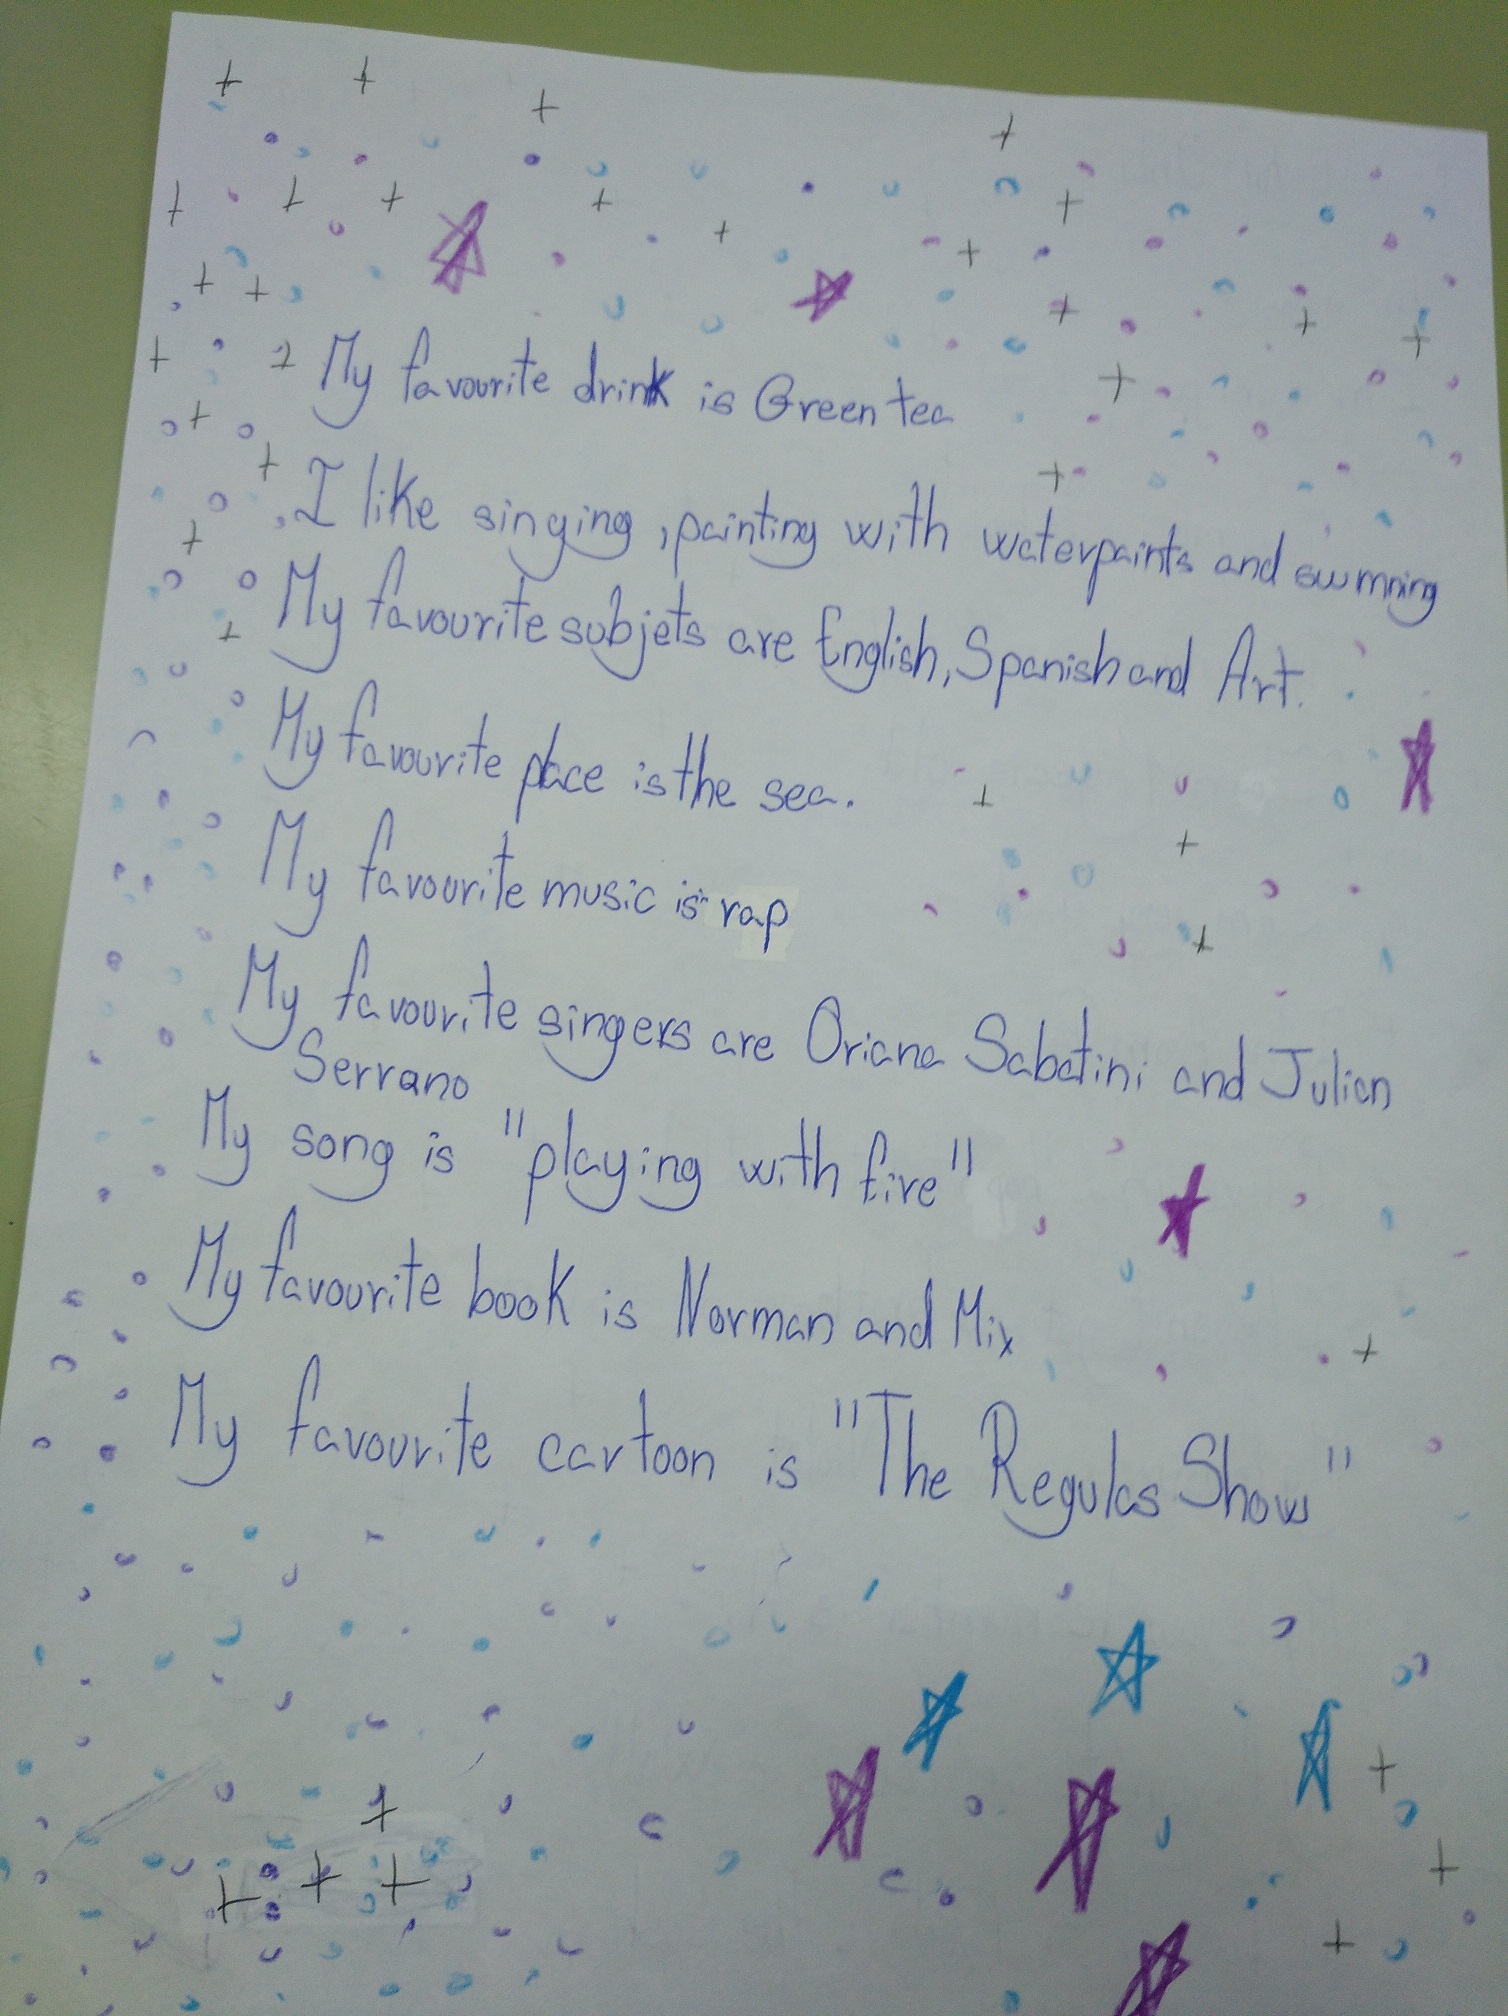 My favourite drink is Green tea
I like singing, painting with waterpaints and swimming
My favourite subjets are English, Spanish and Art.
My favourite place is the sea.
My favourite music is rap
My favourite singers are Oriana Sabatini and Julian
Serrano
My song is "playing with fire"
My favourite book is Norman and Mix
My favourite cartoon is "The Regulas Show"